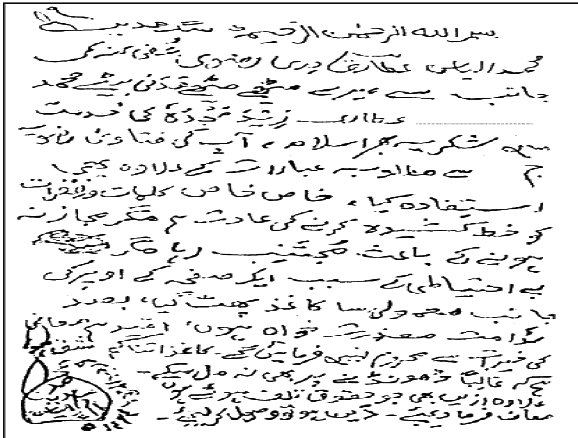 بسم اللہ الرحمٰن الرحیم ط سگِ مدینہ
محمد الیاس عطار قادری رضوی عُفی عنہ کی
جانب سے میرے میٹھے میٹھے مدنی بیٹے محمد
عطاری زِیْدَ مَجْدُہٗ کی خدمت
میں شکریہ بھرا سلام، آپ کی فتاویٰ رضویہ
ج سے مطلوبہ عبارات کے علاوہ بھی
استفادہ کیا، خاص خاص کلمات و فقرات
کو خط کشیدہ کرنے کی عادت ہے مگر مجاز نہ
ہونے کے باعث مُجتَنِب رہا مگر
بے احتیاطی کے سبب ایک صفحہ کے اوپر کی
جانب معمولی سا کاغذ پھٹ گیا، بصد
ندامت معذرت خواہ ہوں، اُمّید ہے معافی
کی خیرات سے محروم نہیں فرمائیں گے۔ کاغذ اتنا کم شق ہوا
ہے کہ غالباً ڈھونڈنے پر بھی نہ مل سکے۔
علاوہ ازیں بھی جو حقوق تلف ہوئے ہوں
معاف فرما دیجئے۔ دَین ہو تو وصول کر لیجئے۔